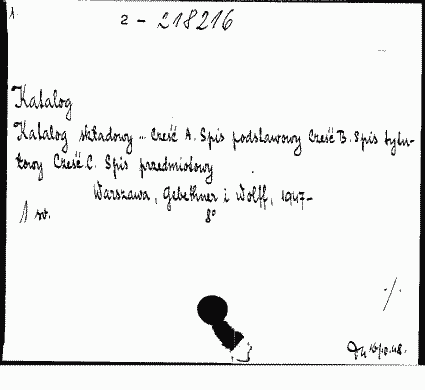 1.
2 - 218216
Katalog
Katalog składowy .. Cześć A. Spis podstawowy Cześć B. Spis tytu-
łowy Cześć C. Spis przedmiotowy
Warszawa, Gebethner i Wolff, 1947-
1 sv. 8°